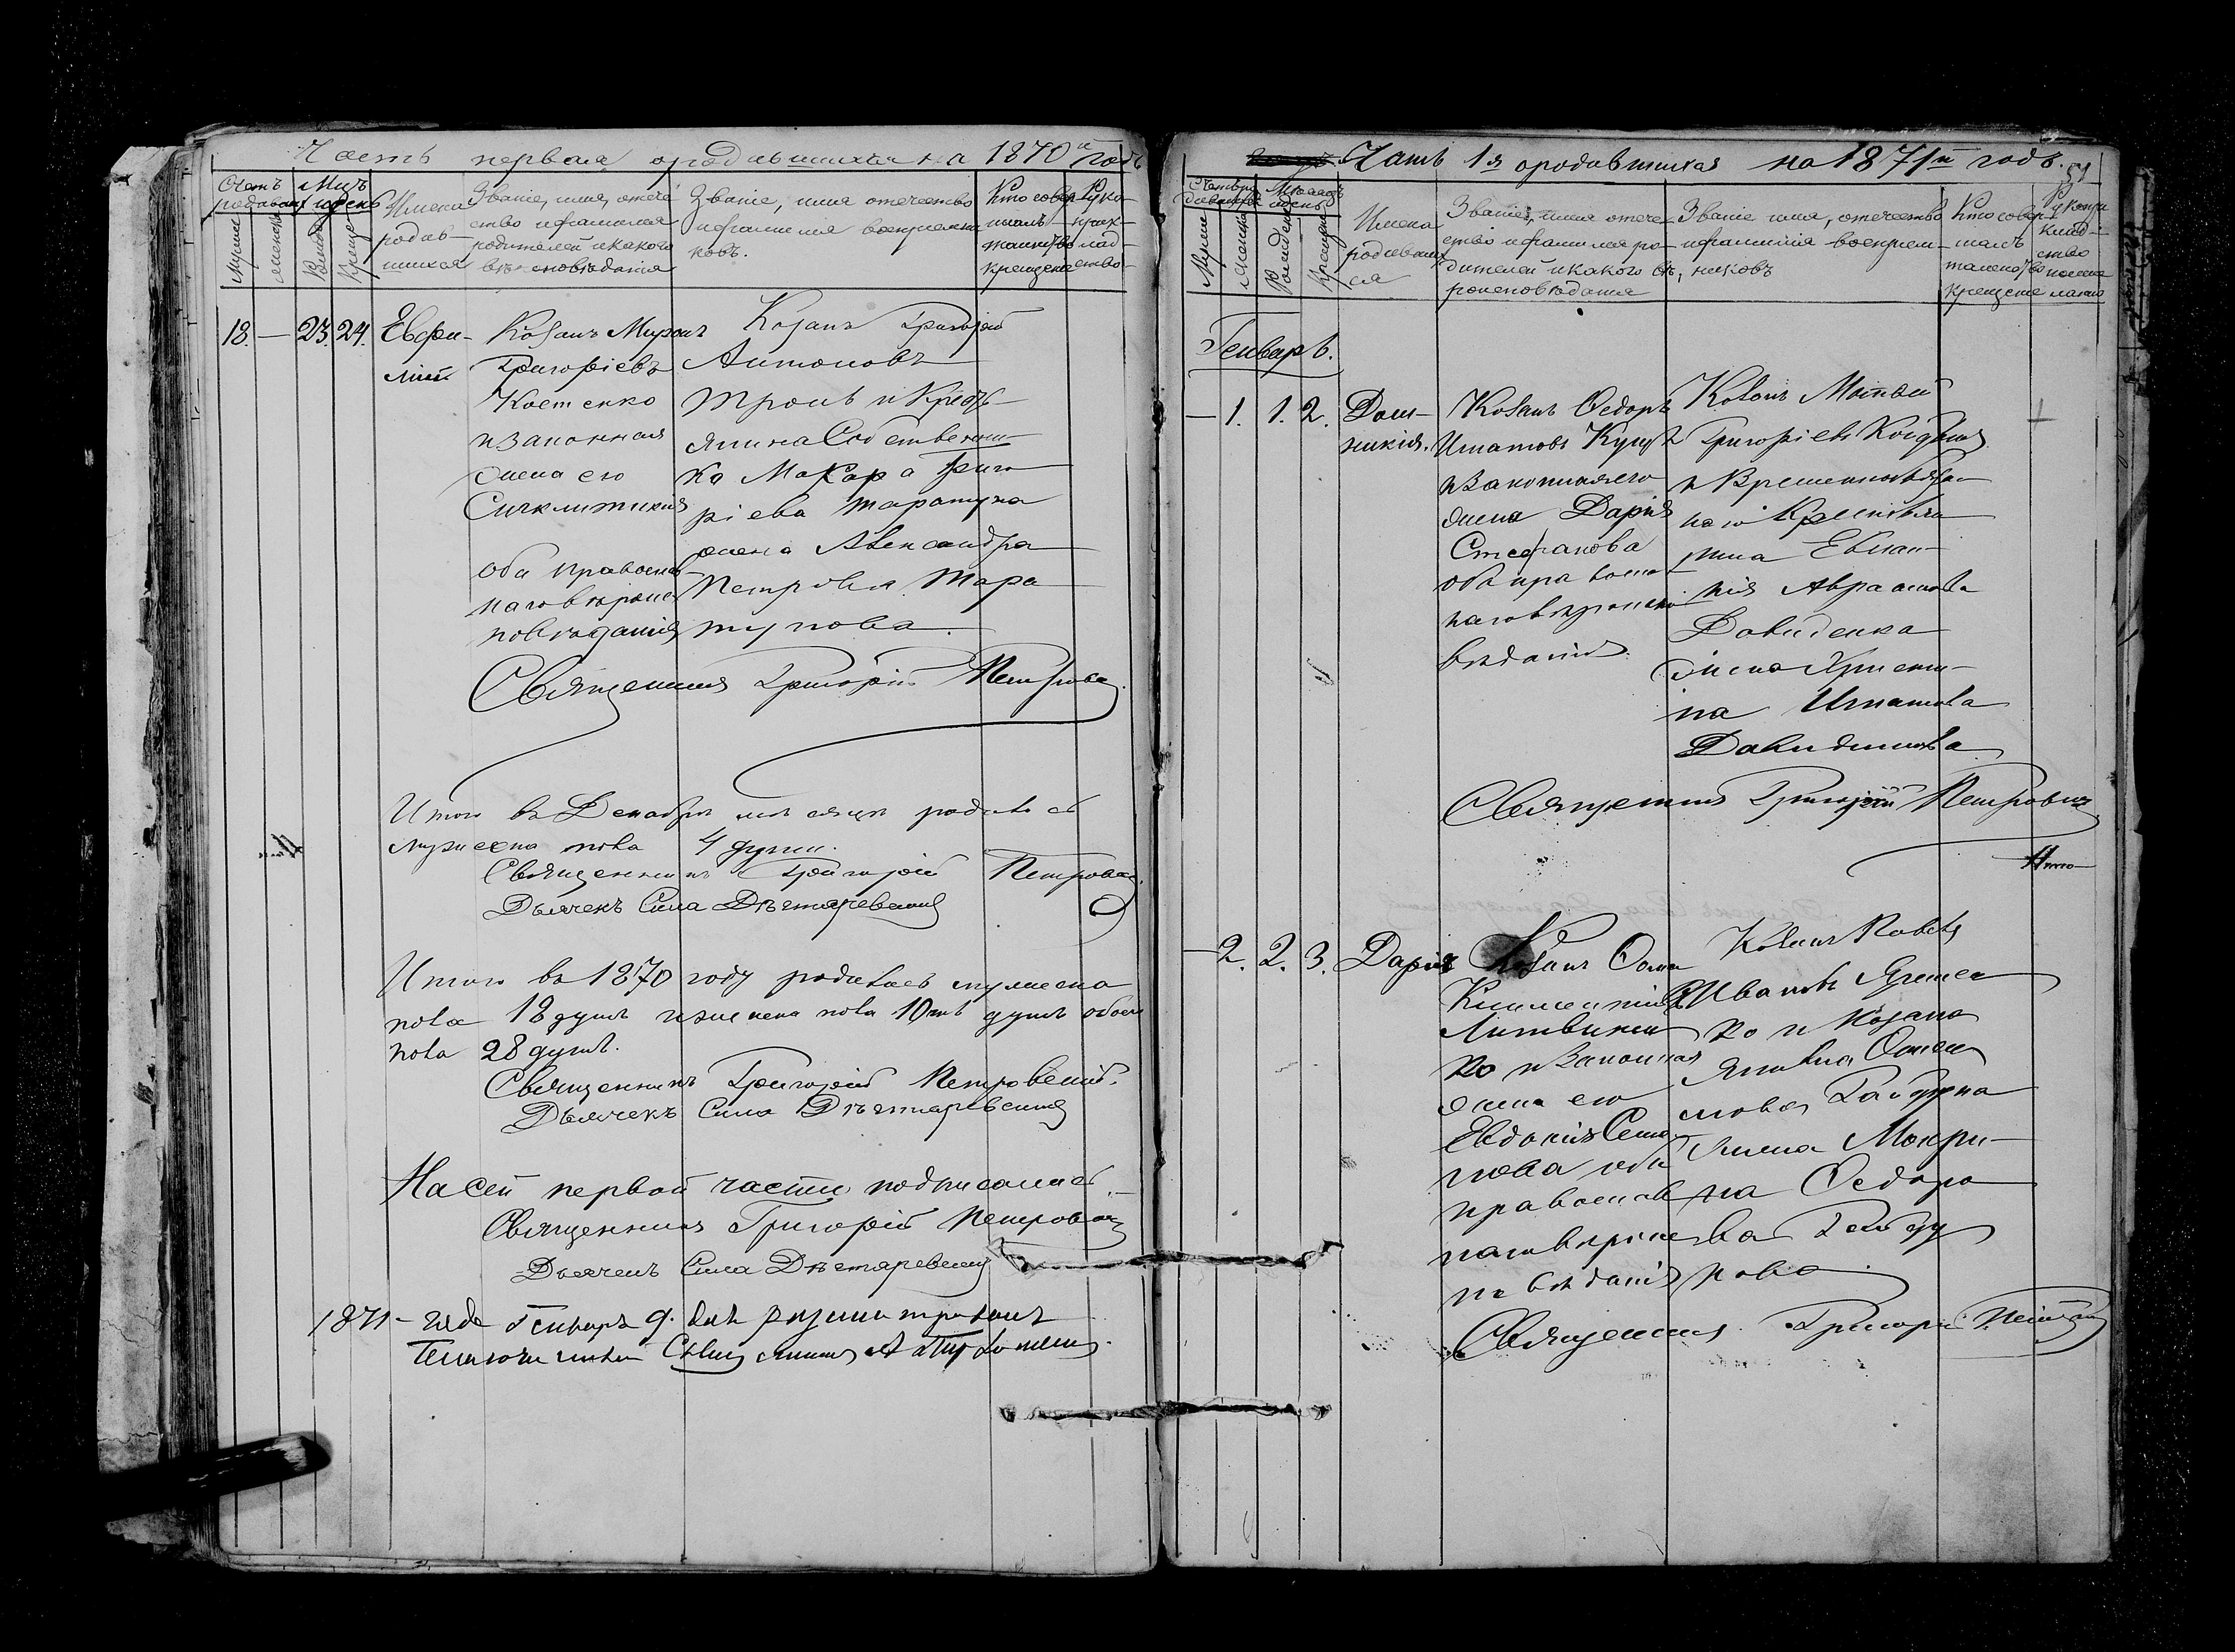 Часть первая о родившихся на 1870й годъ
Счетъ родивших
Мцъ и день
Мужеск
женска
Рожде
Креще
Имена родив-шихся
Званіе, имя, отече-
ство и фамилія
родителей и какого
вѣроисповѣданія
Званіе, имя отчество
и фамилія воспріем
ковъ.
Кто совер
шалъ
таинство
крещенія
Руко-
прик-
лад-
ство
18. — 23. 24.
Евфи-
мій
Козакъ Миронъ
Григоріевъ
Костенко
и законная
жена его
Сигклитикия
оба православ
наго вѣроис
повѣданія
Козакъ Григорій
Антоновъ
Троць и Крестъ
янина Собственни
ка Макара Григо
ріева Таратуна
жена Александра
Петрова Тара
тунова.
Священникъ Григорій Петровскій
Итого въ Декабрѣ мѣсяцѣ родилось
мужеска пола 4 души.
Священникъ Григорій Петровскій
Дьячекъ Сила Дѣхтяревскій
Итого въ 1870 году родилось мужеска
пола 18 душъ и женска пола 10ть душъ обоего
пола 28 душъ.
Священникъ Григорій Петровскій.
Дьячекъ Сила Дѣхтяревскій
На сей первой части подписались
Священникъ Григорій Петровскій
Дьячекъ Сила Дѣхтяревскій
1871 года Генваря 9. дня
Священникъ
Часть 1я о родившихся на 1871й годъ.
51
Счетъ ро
дившихся
Мѣсяцъ
и день
Мужеск
женска
Рожден
Крещен
Имена
родивших
ся
Званіе, имя отече-
ство и фамилія ро-
дителей и какого вѣ-
роисповѣданія
Званіе имя, отечество
и фамилія воспріем-
никовъ
Кто совер-
шалъ
таинство
крещенія
Рукопри
клад-
ство
по жела
нію
Генварь.
— 1. 1. 2.
Дом-
никія.
Козакъ Ѳедоръ
Игнатовъ
и законная его
жена Дарія
Стефанова
оба православ
наго вѣроиспо
вѣданія.
Козакъ Матвѣй
Григоріевъ
и Временнообязан
наго Крестьян
ина
Авраамова
Давиденка
жена Христи-
на Игнатова
Давиденкова
Священникъ Григорій Петровскій
— 2. 2. 3.
Дарія
Козакъ Ѳома
Климентіевъ
Литвинен
ко и законная
жена его
Евдокія Семе
нова оба
православ
наго вѣроис
повѣданія
Козакъ Павелъ
Ивановъ Яремен
ко и Козака
жена Мокри-
на Ѳедоро
ва
нова
Священникъ Григорій Петровскій